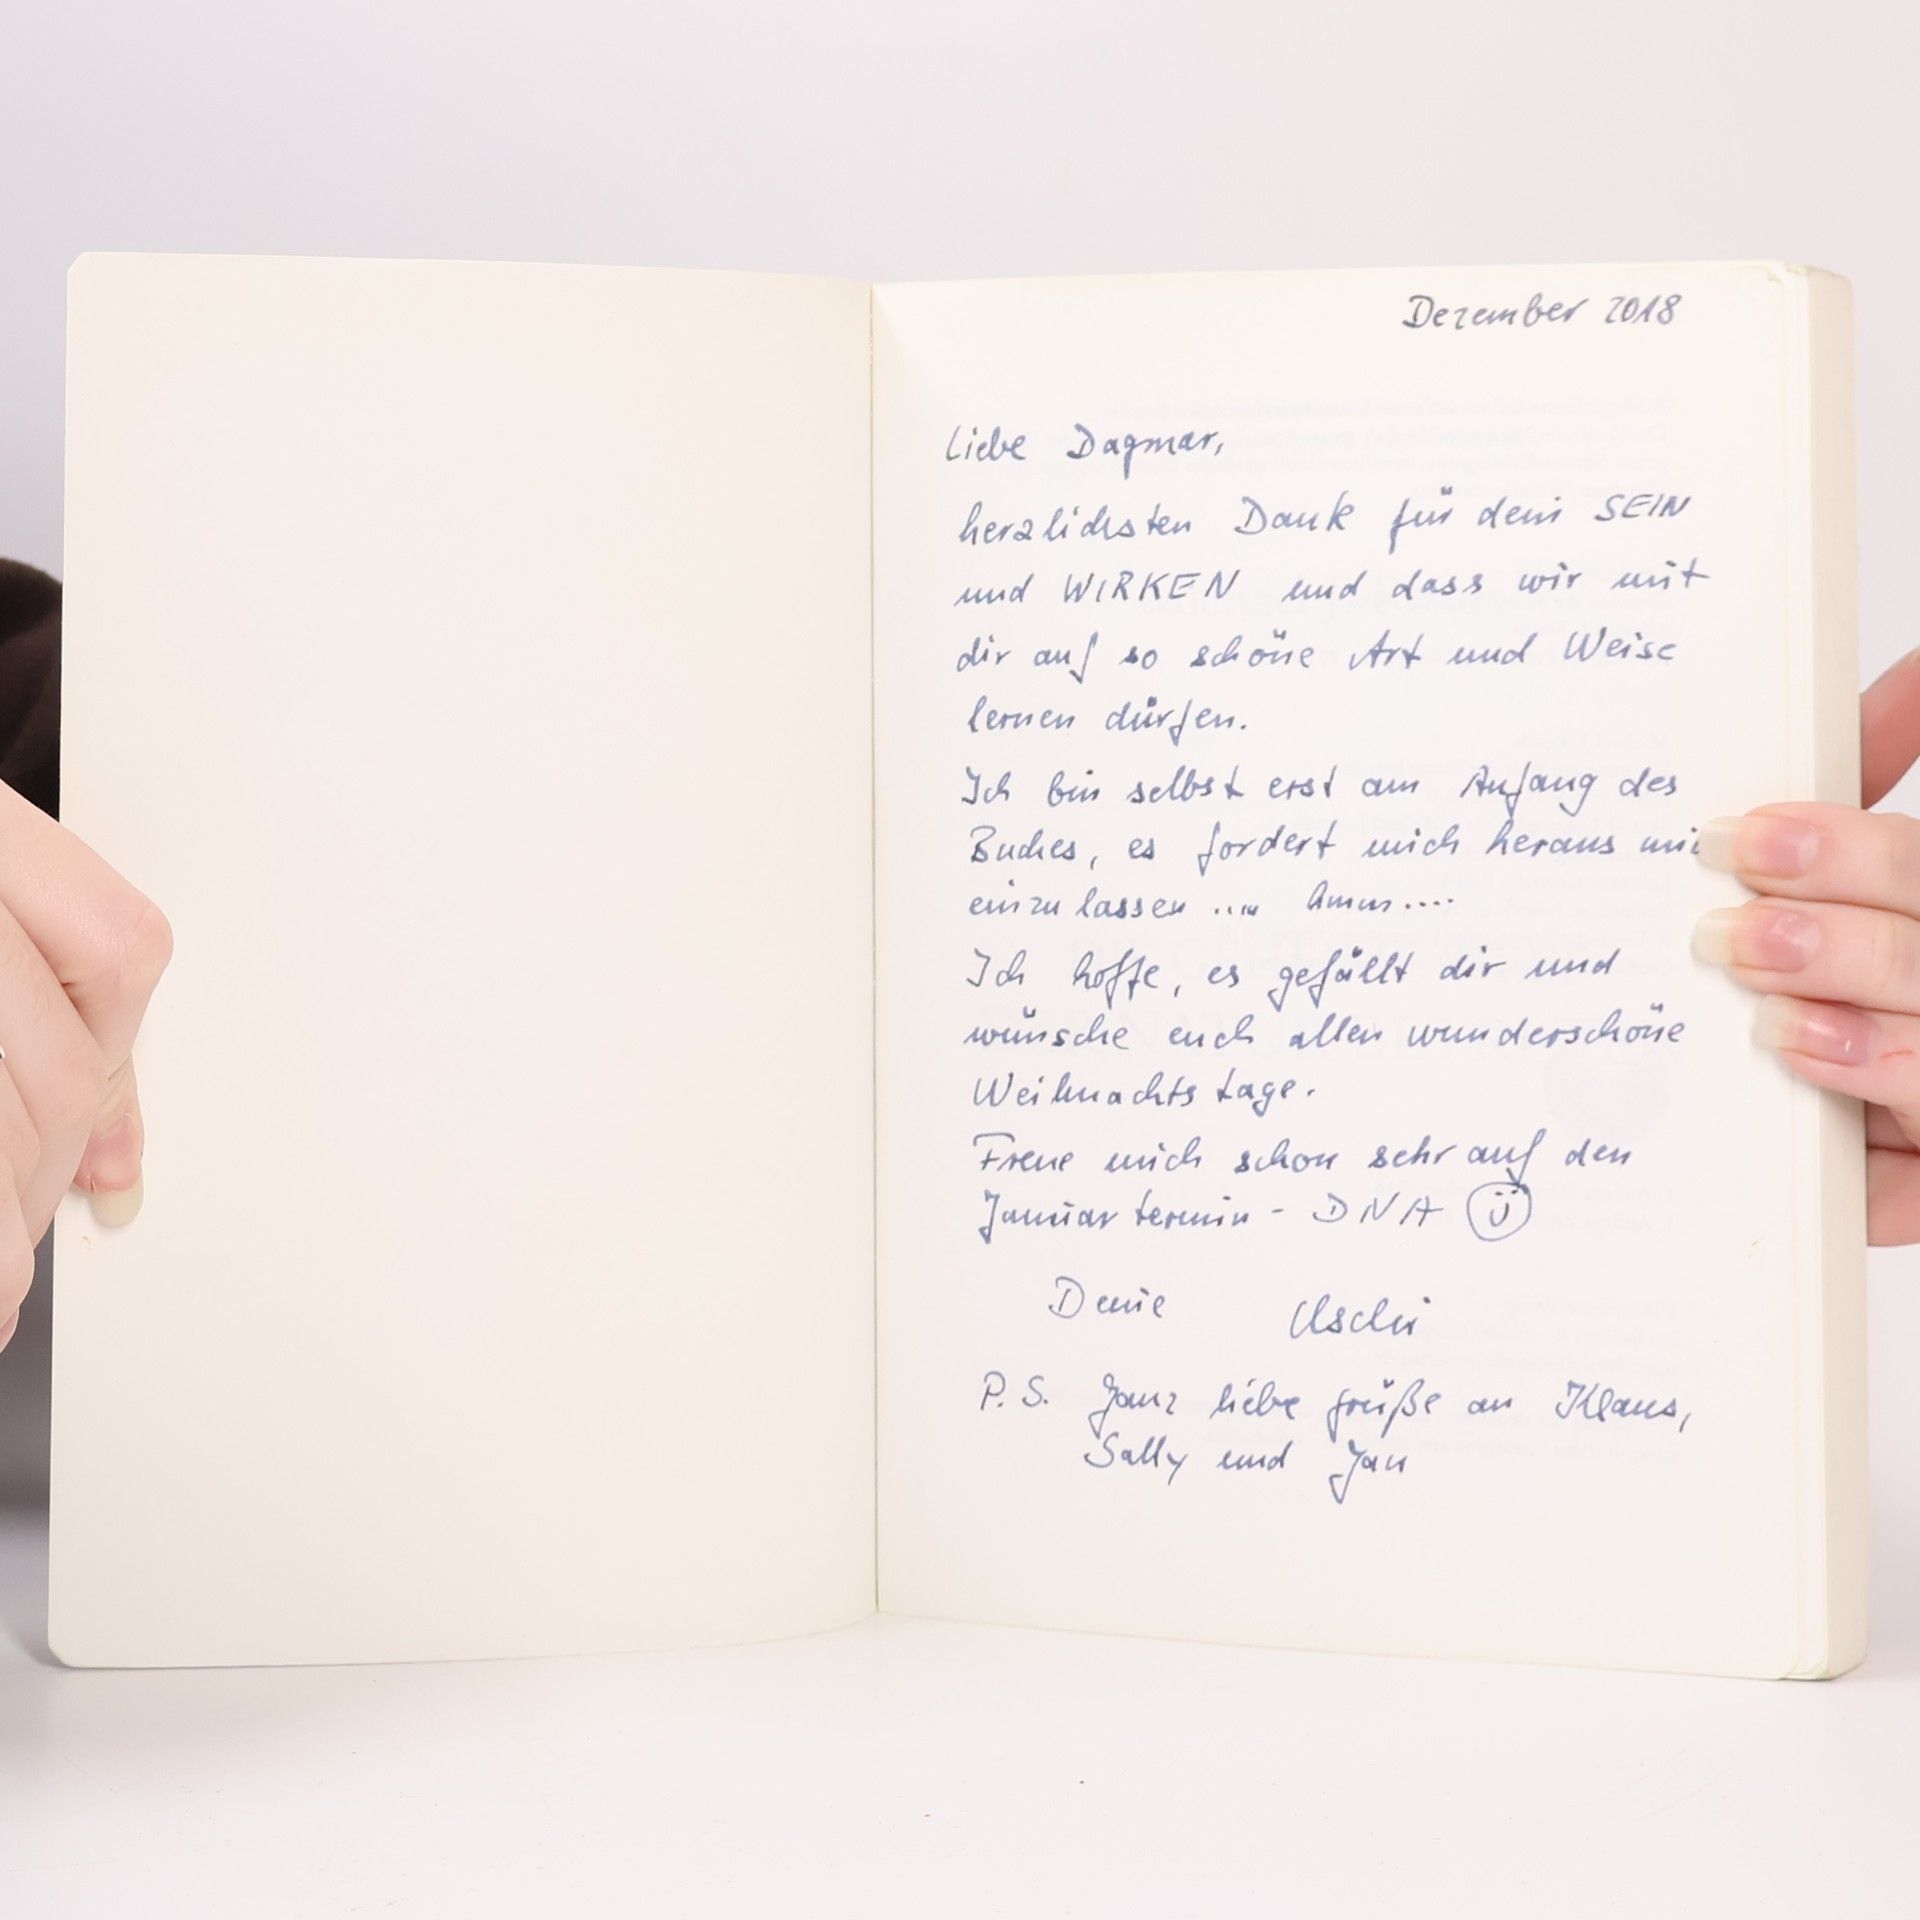 Dezember 2018
Liebe Dagmar,
herzlichsten Dank für dein SEIN
und WIRKEN und dass wir mit
dir auf so schöne Art und Weise
lernen dürfen.
Ich bin selbst erst am Anfang des
Buches, es fordert mich heraus
einzulassen .... hmm....
Ich hoffe, es gefällt dir und
wünsche euch allen wunderschöne
Weihnachtstage.
Freue mich schon sehr auf den
Januartermin - DNA
Deine Uschi
P.S. Ganz liebe Grüße an Klaus,
Sally und Jan